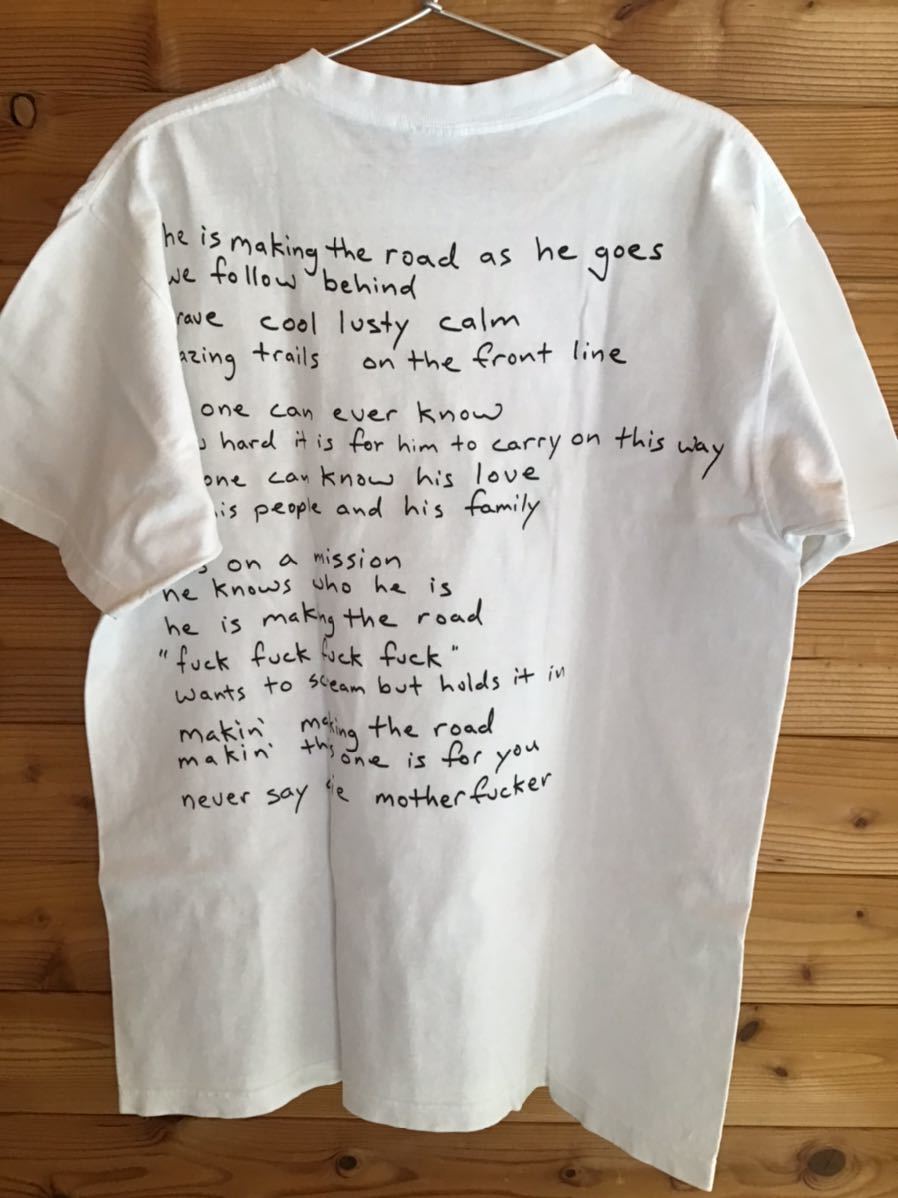 he is making the road as he goes
we follow behind
cool lusty calm
trails on the front line
one can ever know
hard it is for him to carry on this way
one can know his love
people and his family
on a mission
he knows who he is
he is making the road
"fuck fuck fuck fuck"
wants to scream but holds it in
makin' making the road
makin' this one is for you
never say die motherfucker